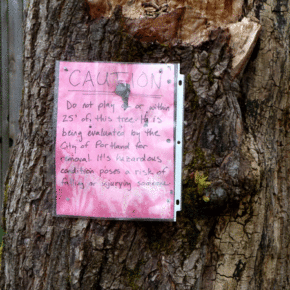 CAUTION
Do not play on or within
25' of this tree. It is
being evaluated by the
City of Portland for
removal. It's hazardous
condition poses a risk of
falling or injuring someone.